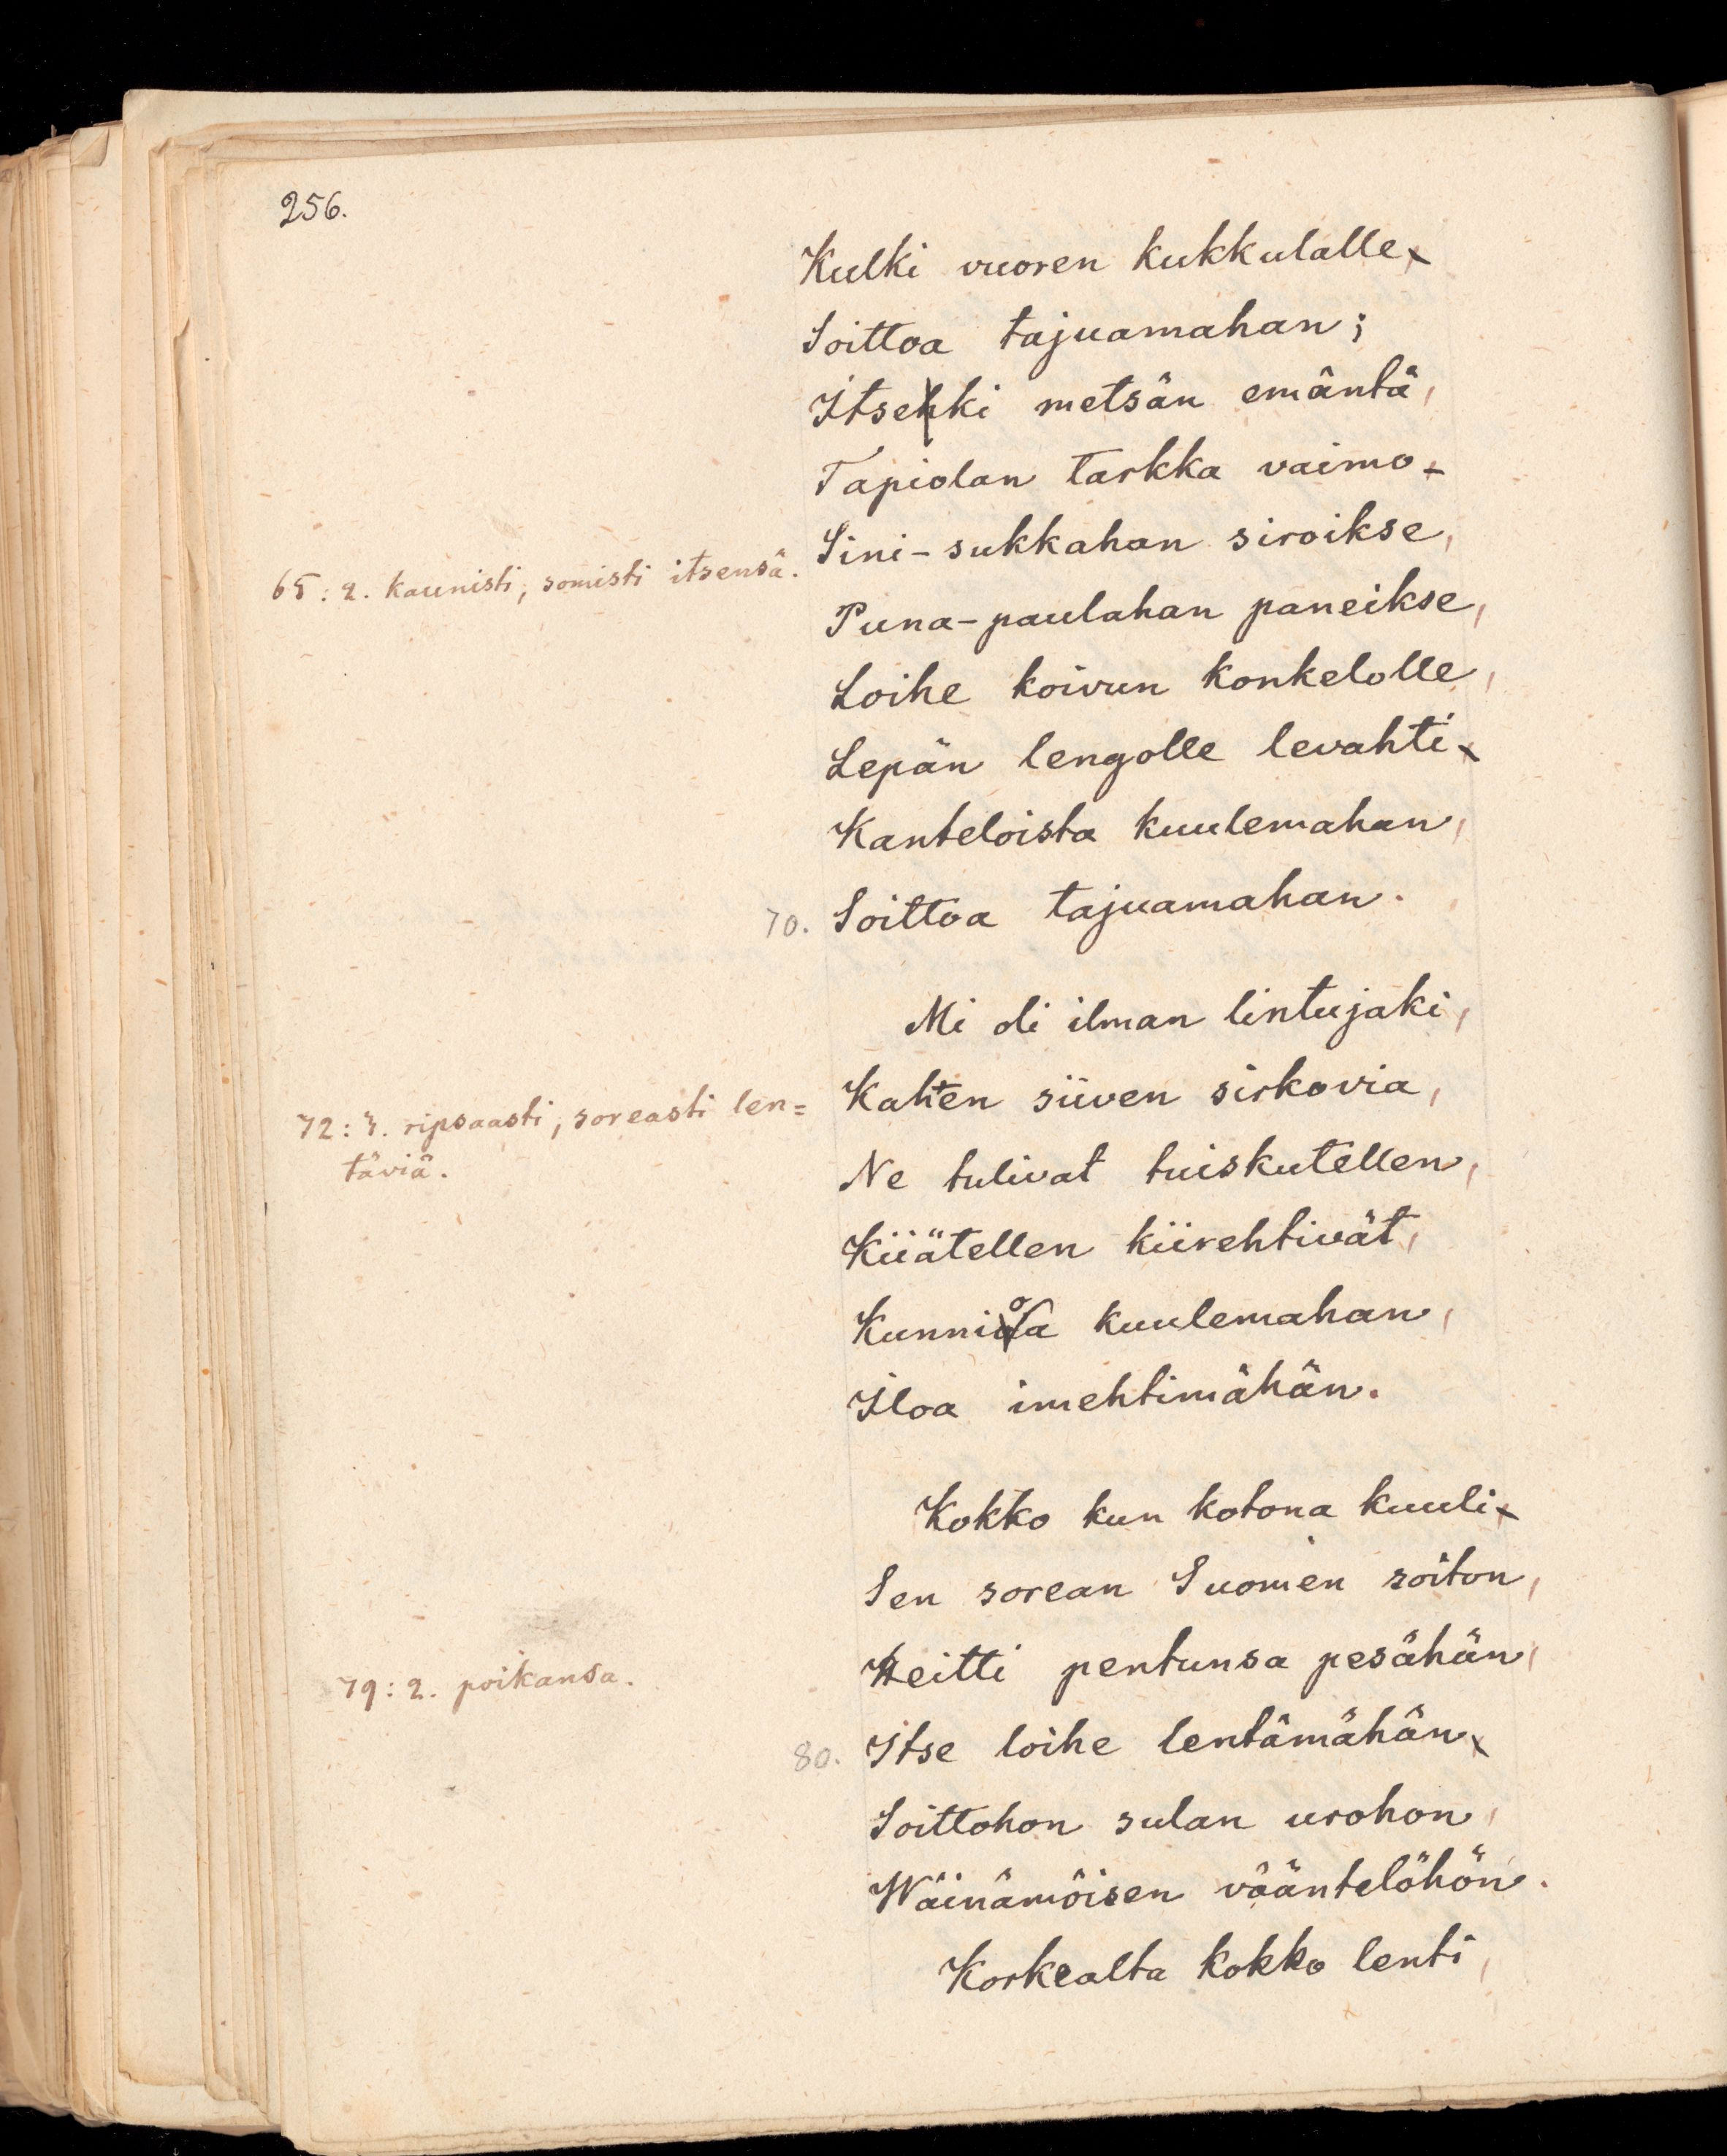 256.
Kulki vuoren kukkulalle
Soittoa tajuamahan;
Itseki metsän emäntä,
Tapiolan tarkka vaimo
65: 2. kaunisti, somisti itsensä.
Sini-sukkahan siroikse,
Puna-paulahan paneikse,
Loihe koivun konkelolle,
Lepän lengolle levahti
Kanteloista kuulemahan,
70. Soittoa tajuamahan.
Mi oli ilman lintujaki,
72: 3. ripsaasti, soreasti len=
täviä.
Kahten siiven sirkovia,
Ne tulivat tuiskutellen,
Kiiätellen kiirehtivät,
Kunnioa kuulemahan,
Iloa imehtimähän.
Kokko kun kotona kuuli
Sen sorean Suomen soiton,
79: 2. poikansa.
Heitti pentunsa pesähän,
80. Itse loihe lentämähän
Soittohon sulan urohon,
Wäinämöisen vääntelöhön.
Korkealta kokko lenti,